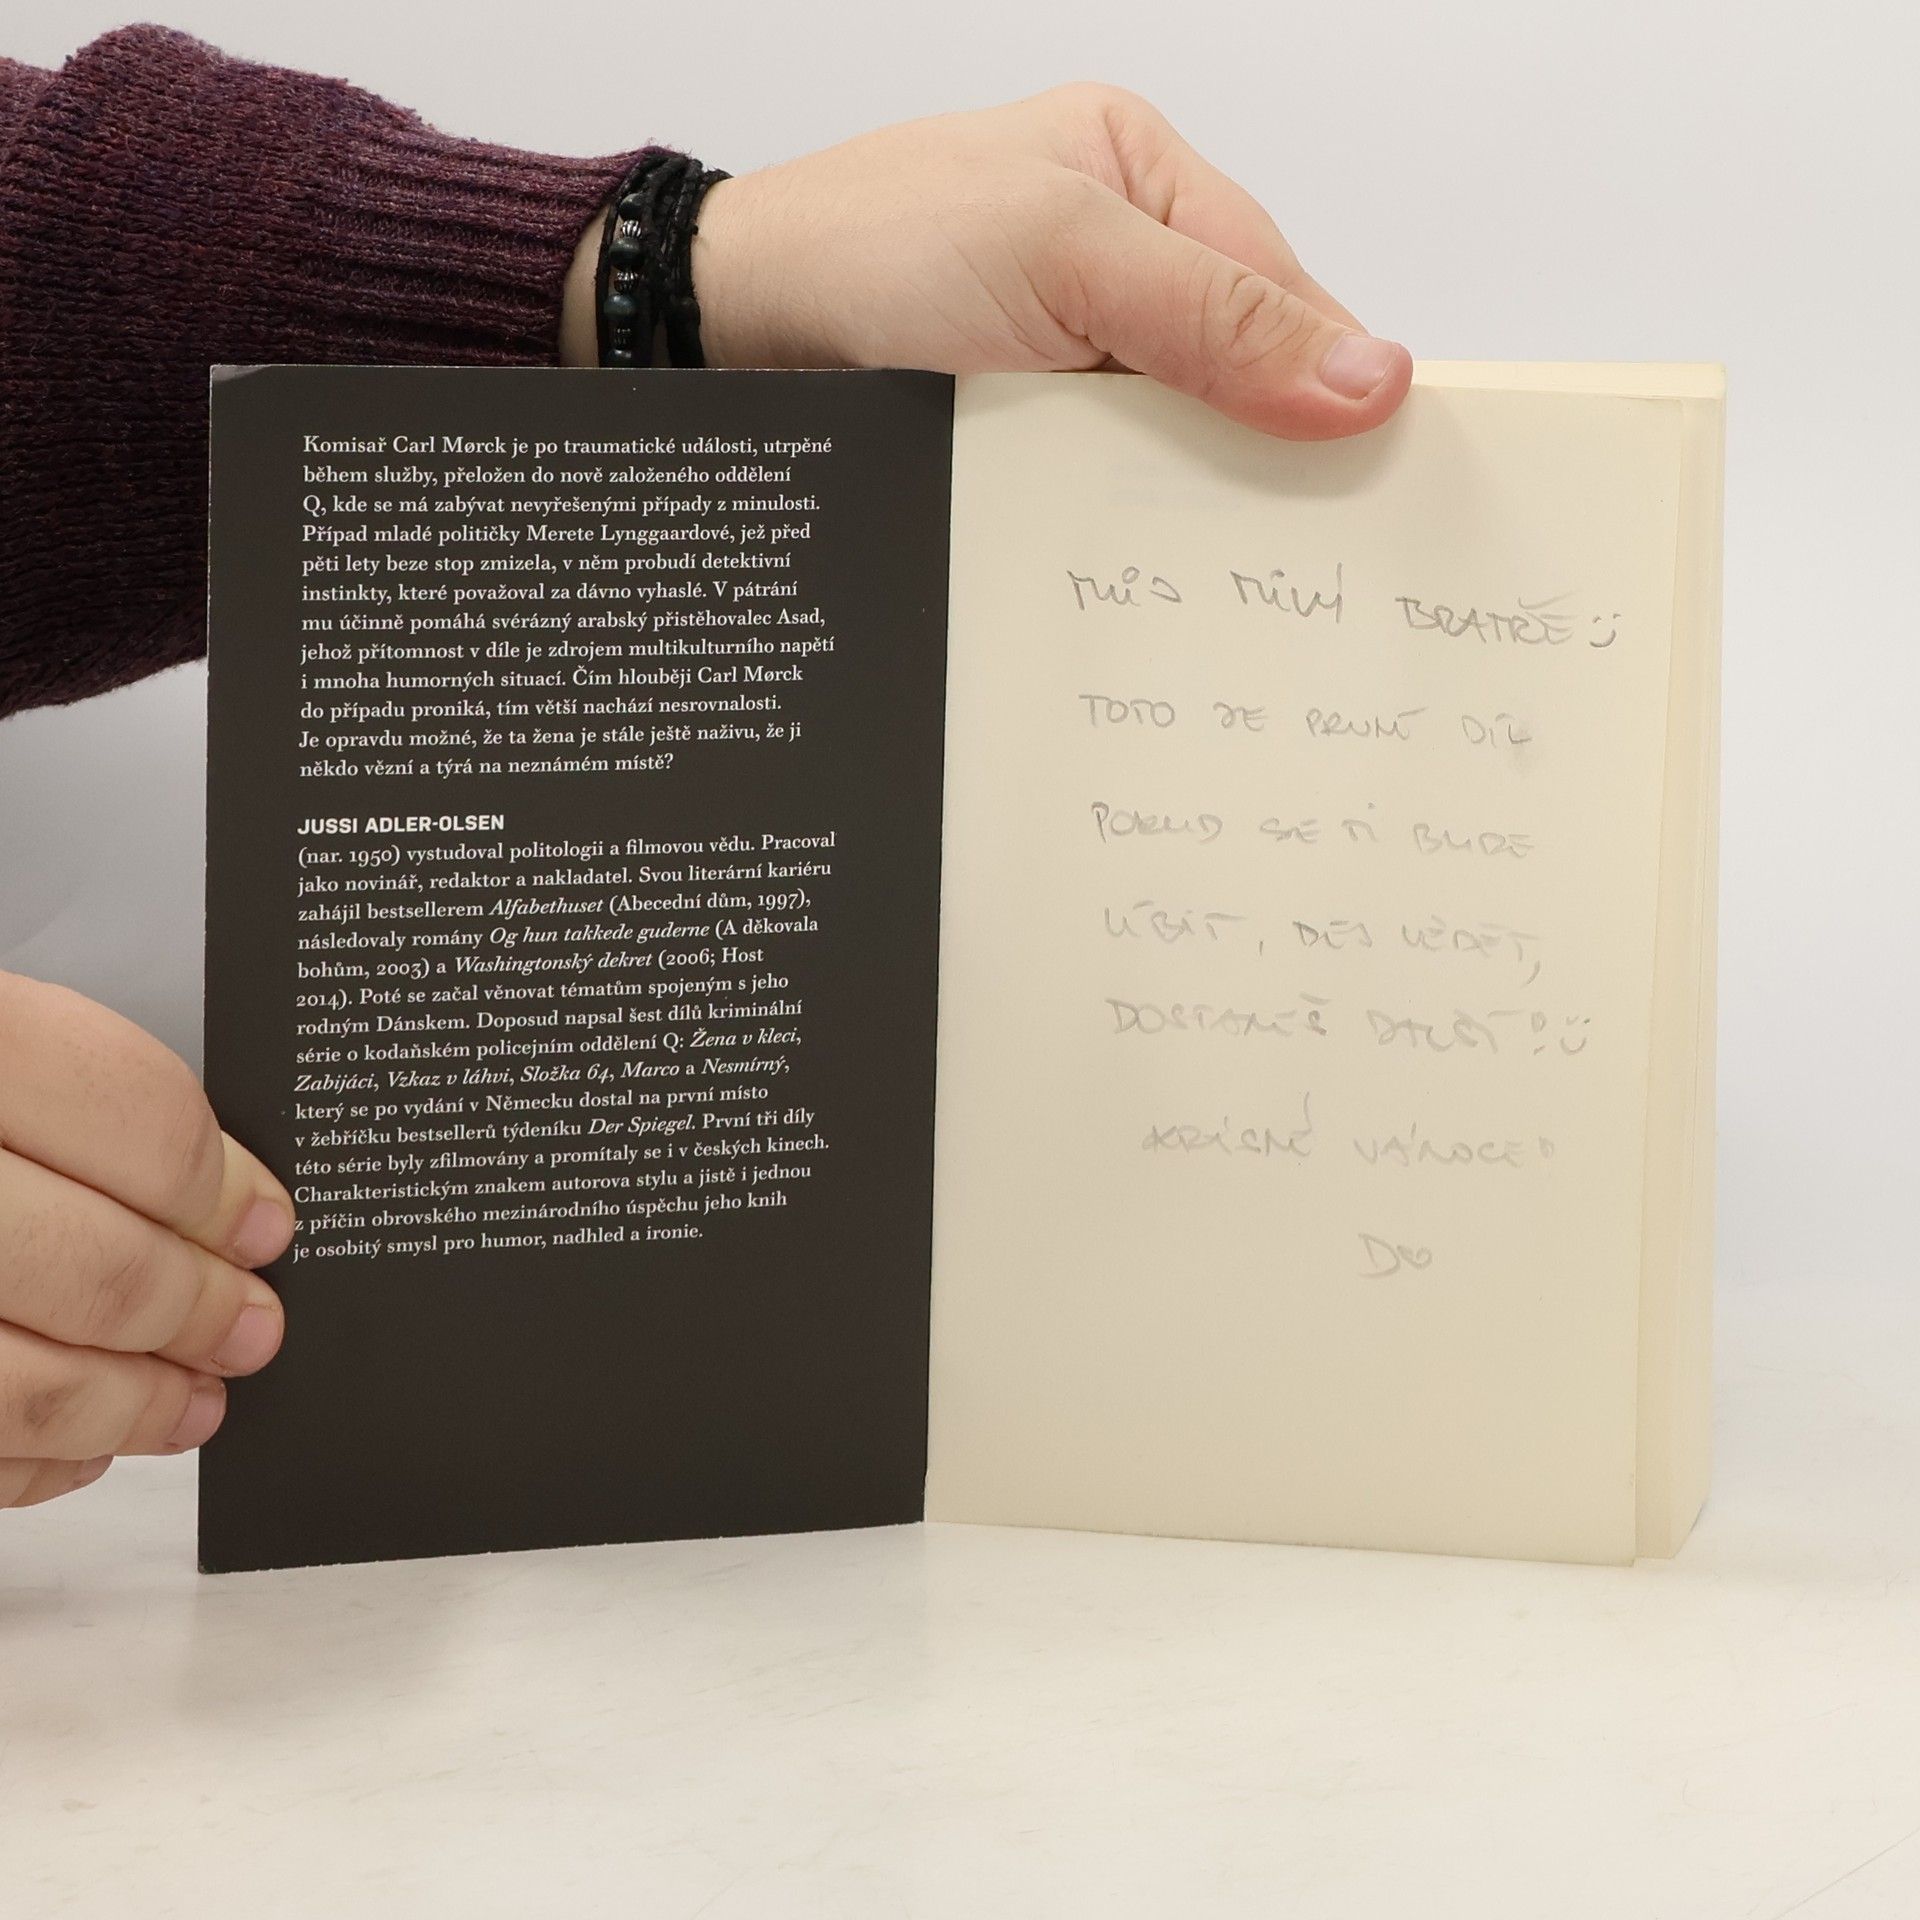 Komisař Carl Mørck je po traumatické události, utrpěné
během služby, přeložen do nově založeného oddělení
Q, kde se má zabývat nevyřešenými případy z minulosti.
Případ mladé političky Merete Lynggaardové, jež před
pěti lety beze stop zmizela, v něm probudí detektivní
instinkty, které považoval za dávno vyhaslé. V pátrání
mu účinně pomáhá svérázný arabský přistěhovalec Asad,
jehož přítomnost v díle je zdrojem multikulturního napětí
i mnoha humorných situací. Čím hlouběji Carl Mørck
do případu proniká, tím větší nachází nesrovnalosti.
Je opravdu možné, že ta žena je stále ještě naživu, že ji
někdo vězní a týrá na neznámém místě?
JUSSI ADLER-OLSEN
(nar. 1950) vystudoval politologii a filmovou vědu. Pracoval
jako novinář, redaktor a nakladatel. Svou literární kariéru
zahájil bestsellerem Alfabethuset (Abecední dům, 1997),
následovaly romány Og hun takkede guderne (A děkovala
bohům, 2003) a Washingtonský dekret (2006; Host
2014). Poté se začal věnovat tématům spojeným s jeho
rodným Dánskem. Doposud napsal šest dílů kriminální
série o kodaňském policejním oddělení Q: Žena v kleci,
Zabijáci, Vzkaz v láhvi, Složka 64, Marco a Nesmírný,
který se po vydání v Německu dostal na první místo
v žebříčku bestsellerů týdeníku Der Spiegel. První tři díly
této série byly zfilmovány a promítaly se i v českých kinech.
Charakteristickým znakem autorova stylu a jistě i jednou
z příčin obrovského mezinárodního úspěchu jeho knih
je osobitý smysl pro humor, nadhled a ironie.
MŮJ MILÝ BRATŘE
TOTO JE PRVNÍ DÍL
POKUD SE TI BUDE
LÍBIT, DEJ VĚDĚT,
DOSTANEŠ DALŠÍ!
KRÁSNÉ VÁNOCE!